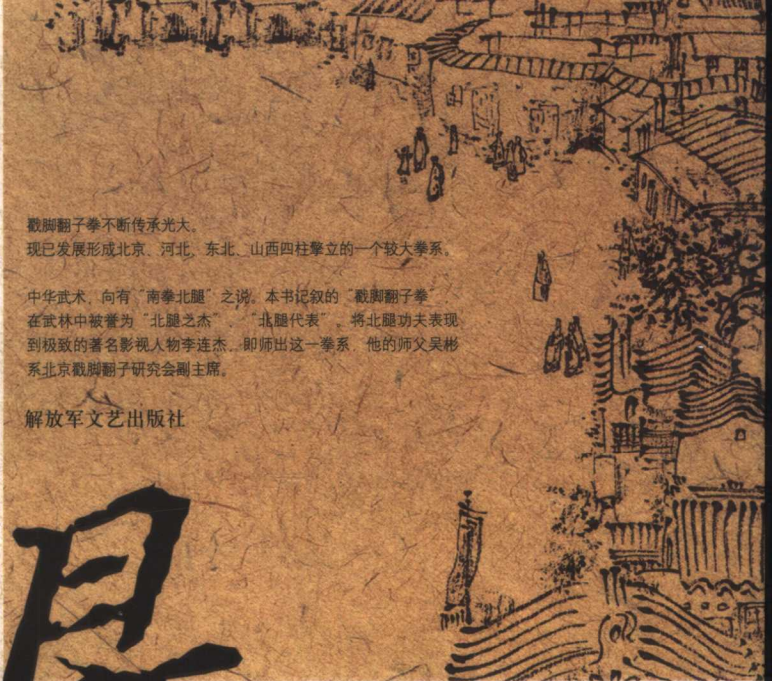 戳脚翻子拳不断传承光大。
现已发展形成北京、河北、东北、山西四柱擎立的一个较大拳系。
中华武术，向有“南拳北腿”之说。本书记叙的“戳脚翻子拳”，
在武林中被誉为“北腿之杰”、“北腿代表”。将北腿功夫表现
到极致的著名影视人物李连杰，即师出这一拳系，他的师父吴彬
系北京戳脚翻子研究会副主席。
解放军文艺出版社